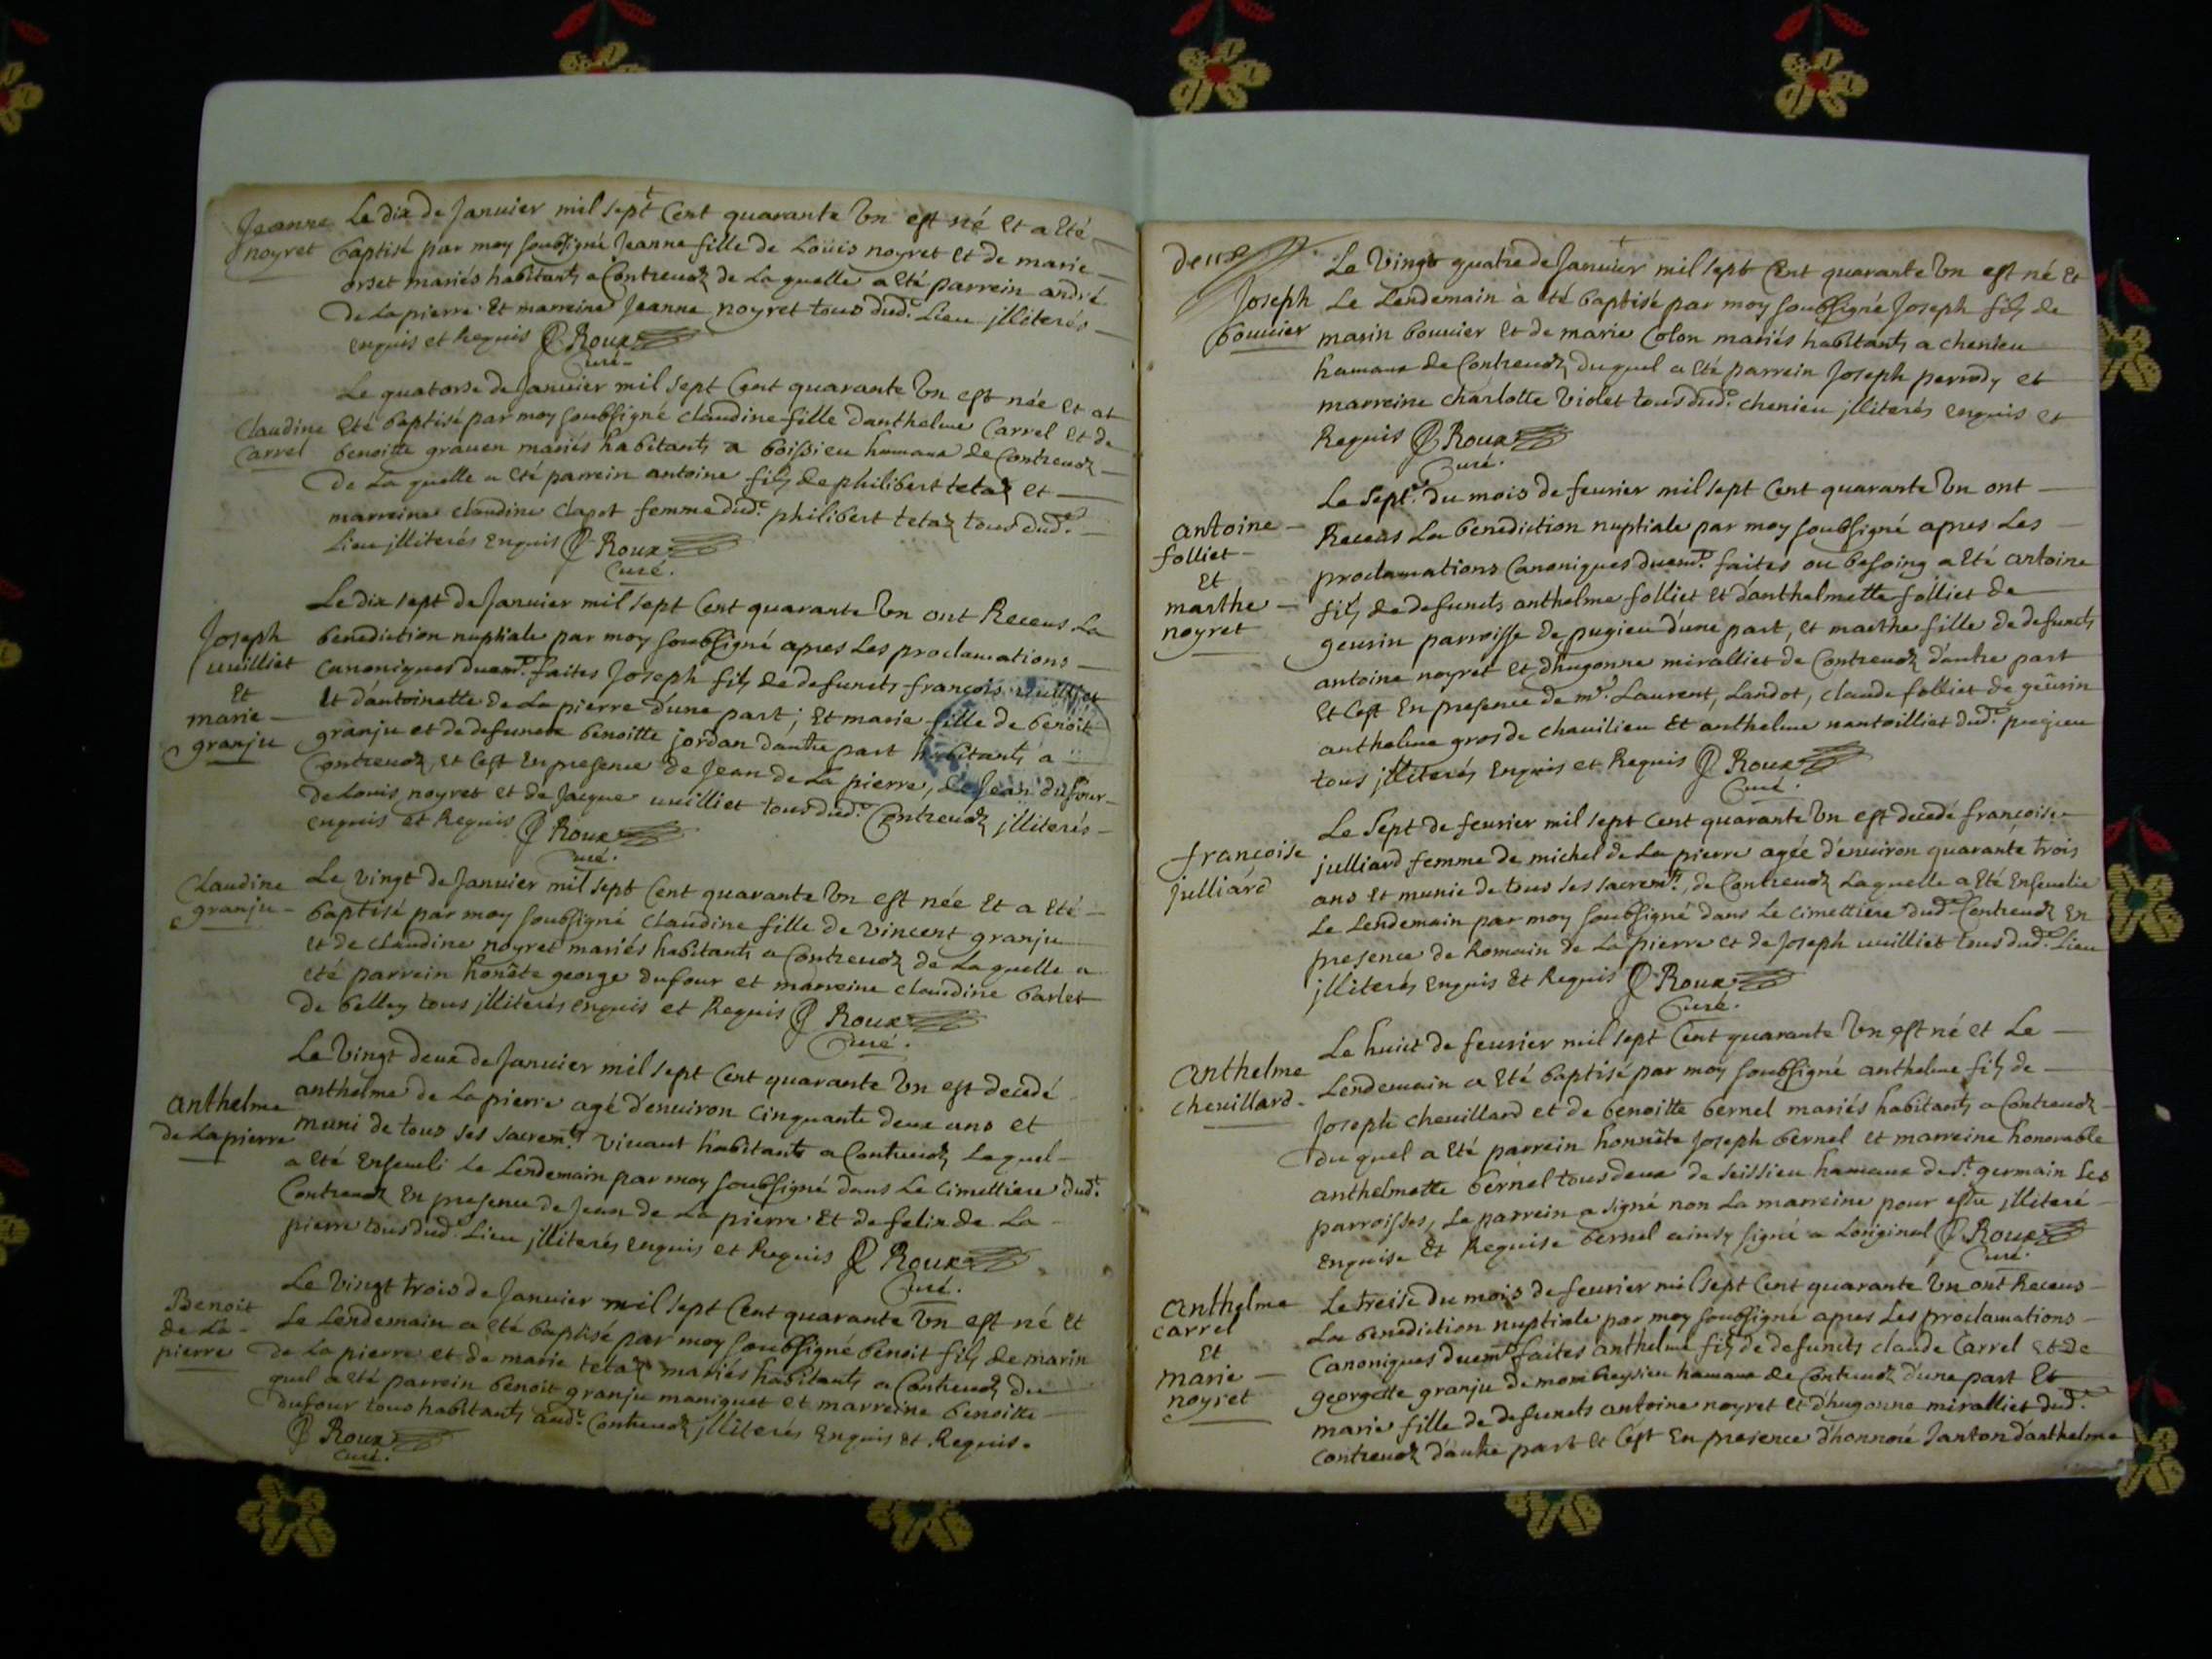 Jeanne
noyret
Le dix de Janvier mil sept Cent quarante Vn est né Et a Eté
baptisé par moy soubsigné Jeanne fille de Loüis noyret et de marie
orset mariés habitants a Contrevoz de La quelle a Eté parrein andré
De La pierre Et marreine Jeanne noyret tous dud. Lieu illiterés
enquis et Requis Roux
Curé
Claudine
Carrel
Le quatorse de Janvier mil sept Cent quarante Vn est née Et at
Eté baptisé par moy soubsigné claudine fille danthelme Carrel Et de
benoitte graven mariés habitants a boissieu hameau de Contrevoz
De La quelle a Eté parrein antoine fils de philibert tetaz et
marreine claudine clapot femme dud. philibert tetaz tous dud.
Lieu illiterés Enquis Roux
Curé.
Joseph
vuilliet
Et
marie
granju
Le dix sept de Janvier mil sept Cent quarante Vn ont Receus La
benediction nuptiale par moy soubsigné apres Les proclamations
Canoniques duem.t faites Joseph fils de defuncts françois vuilliet
Et d'antoinette de La pierre d'une part; Et marie fille de benoit
granju et de defuncte benoitte jordan d'autre part habitants a
Contrevoz, Et C'est En presence de Jean de La pierre, de Jean dufour
de Louis noyret et de Jacque vuilliet tous dud. Contrevoz illiterés
enquis et Requis Roux
Curé.
Claudine
granju
Le vingt de Janvier mil sept Cent quarante Vn est née Et a Eté
baptisé par moy soubsigné claudine fille de vincent granju
Et de claudine noyret mariés habitants a Contrevoz de La quelle a
Eté parrein honête george dufour et marreine claudine barlet
de belley tous illiterés enquis et Requis Roux
Curé.
anthelme
de La pierre
Le Vingt deux de Janvier mil sept Cent quarante Vn est decedé
anthelme de La pierre agé d'environ Cinquante deux ans et
muni de tous ses sacrem.ts vivant habitants a Contrevoz Laquel
a Eté Enseveli Le Lendemain par moy soubsigné dans Le Cimettiere dud.
Contrevoz En presence de Jean de La pierre Et de felix de La
pierre tous dud. Lieu illiterés enquis et Requis Roux
Curé.
Benoit
de La
pierre
Le Vingt trois de Janvier mil sept Cent quarante Vn est né Et
Le Lendemain a Eté baptisé par moy soubsigné benoit fils de marin
De La pierre et de marie tetaz mariés habitants a Contrevoz du
quel a Eté parrein benoit granju maniquet et marreine benoitte
dufour tous habitants aud. Contrevoz illiterés Enquis et Requis.
Roux
Curé.
deux
Joseph
bouvier
Le Vingt quatre de Janvier mil sept Cent quarante Vn est né Et
Le Lendemain à été baptisé par moy soubsigné Joseph fils de
marin bouvier Et de marie Colon mariés habitants a chenieu
hameau de Contrevoz duquel a Eté parrein Joseph perrody et
marreine charlotte Violet tous dud. chenieu illiterés enquis et
Requis Roux
Curé.
antoine
folliet
Et
marthe
noyret
Le Sept. du mois de fevrier mil sept Cent quarante Vn ont
Receus La benediction nuptiale par moy soubsigné apres Les
proclamations Canoniques duem.t faites ou besoing a Eté antoine
fils de defuncts anthelme folliet Et d'anthelmette folliet de
gevrin parroisse de pugieu d'une part, et marthe fille de defuncts
antoine noyret et d'hugonne miralliet de Contrevoz d'autre part
Et C'est En presence de m.r Laurent, Landot, claude folliet de gevrin
anthelme gros de chavilieu Et anthelme nantoilliet dud. pugieu
tous illiterés Enquis et Requis Roux
Curé.
françoise
julliard
Le Sept de fevrier mil sept Cent quarante Vn est decedé françoise
julliard femme de michel de La pierre agée d'environ quarante trois
ans Et munie de tous ses sacrem.ts, de Contrevoz Laquelle a Eté Ensevelie
Le Lendemain par moy soubsigné dans Le Cimettiere dud. Contrevoz En
presence de Romain de La pierre et de Joseph vuilliet tous dud. Lieu
illiterés Enquis Et Requis Roux
Curé.
anthelme
chevillard
Le huict de fevrier mil sept Cent quarante Vn est né et Le
Lendemain a Eté baptisé par moy soubsigné anthelme fils de
Joseph chevillard et de benoitte bernel mariés habitants a Contrevoz
du quel a Eté parrein honnête Joseph bernel Et marreine honorable
anthelmette bernel tous deux de seissieu hameau de S.t germain Les
parroisses, Le parrein a signé non La marreine pour estre illiteré
Enquise Et Requise bernel ainsy signé a L'original Roux
Curé.
anthelme
carrel
Et
marie
noyret
Le treise du mois de fevrier mil sept Cent quarante Vn ont Receus
La benediction nuptiale par moy soubsigné apres Les proclamations
Canoniques duem.t faites anthelme fils de defuncts claude Carrel Et de
georgette granju de hameau de Contrevoz d'une part Et
marie fille de defuncts antoine noyret Et d'hugonne miralliet dud.
Contrevoz d'autre part Et C'est En presence d'honnoré Janton d'anthelme